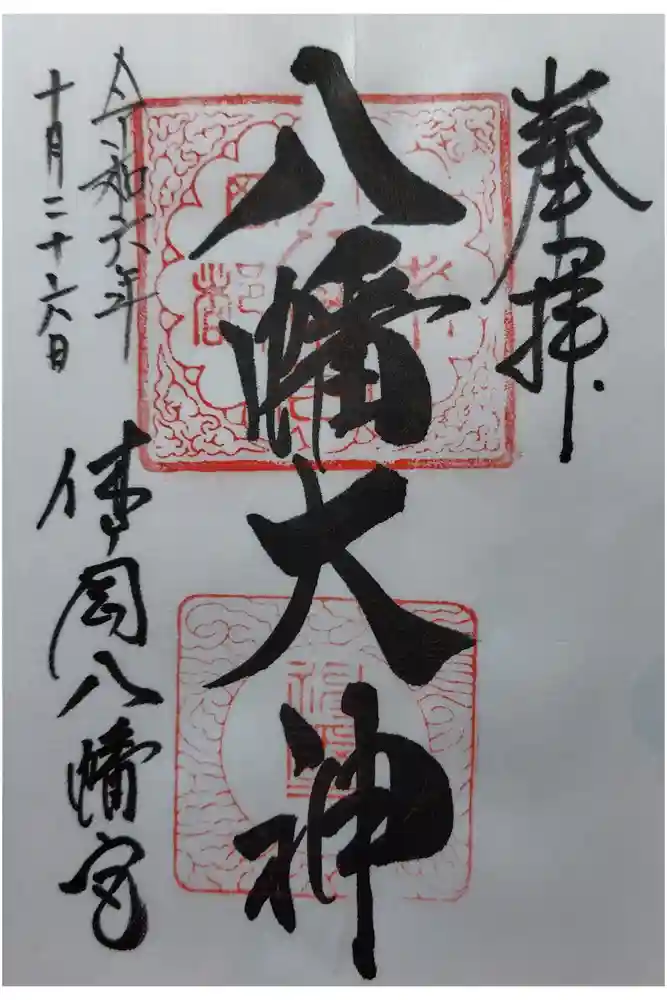 奉拝
八幡大神
令和六年
十月二十六日
岡八幡宮